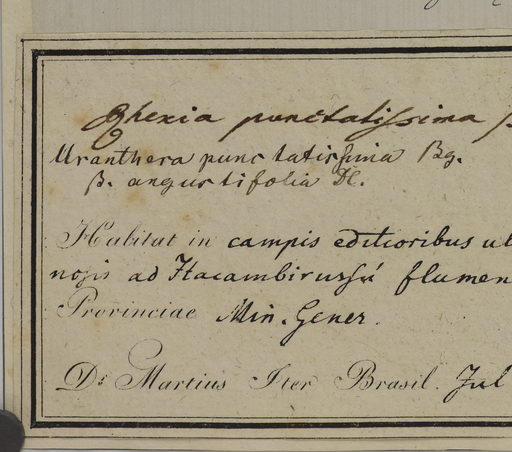 Rhexia punctatissima β
Uranthera punctatissima Bg.
β. angustifolia DC.
Habitat in campis editioribus ul
nosis ad Itacambirussú flumen
Provinciae Min. Gener.
Dr Martius Iter Brasil. Jul